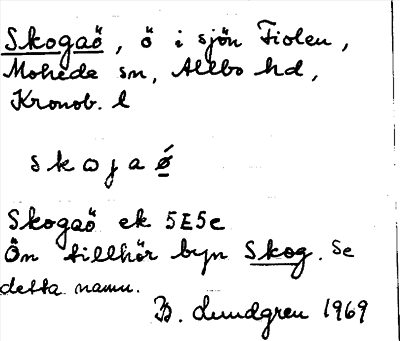 Skogaö, ö i sjön Fiolen,
Moheda sn, Allbo hd,
Kronob. l
skωjaǿ
Skogaö ek 5E5c
Ön tillhör byn Skog. Se
detta namn.
B. Lundgren 1969